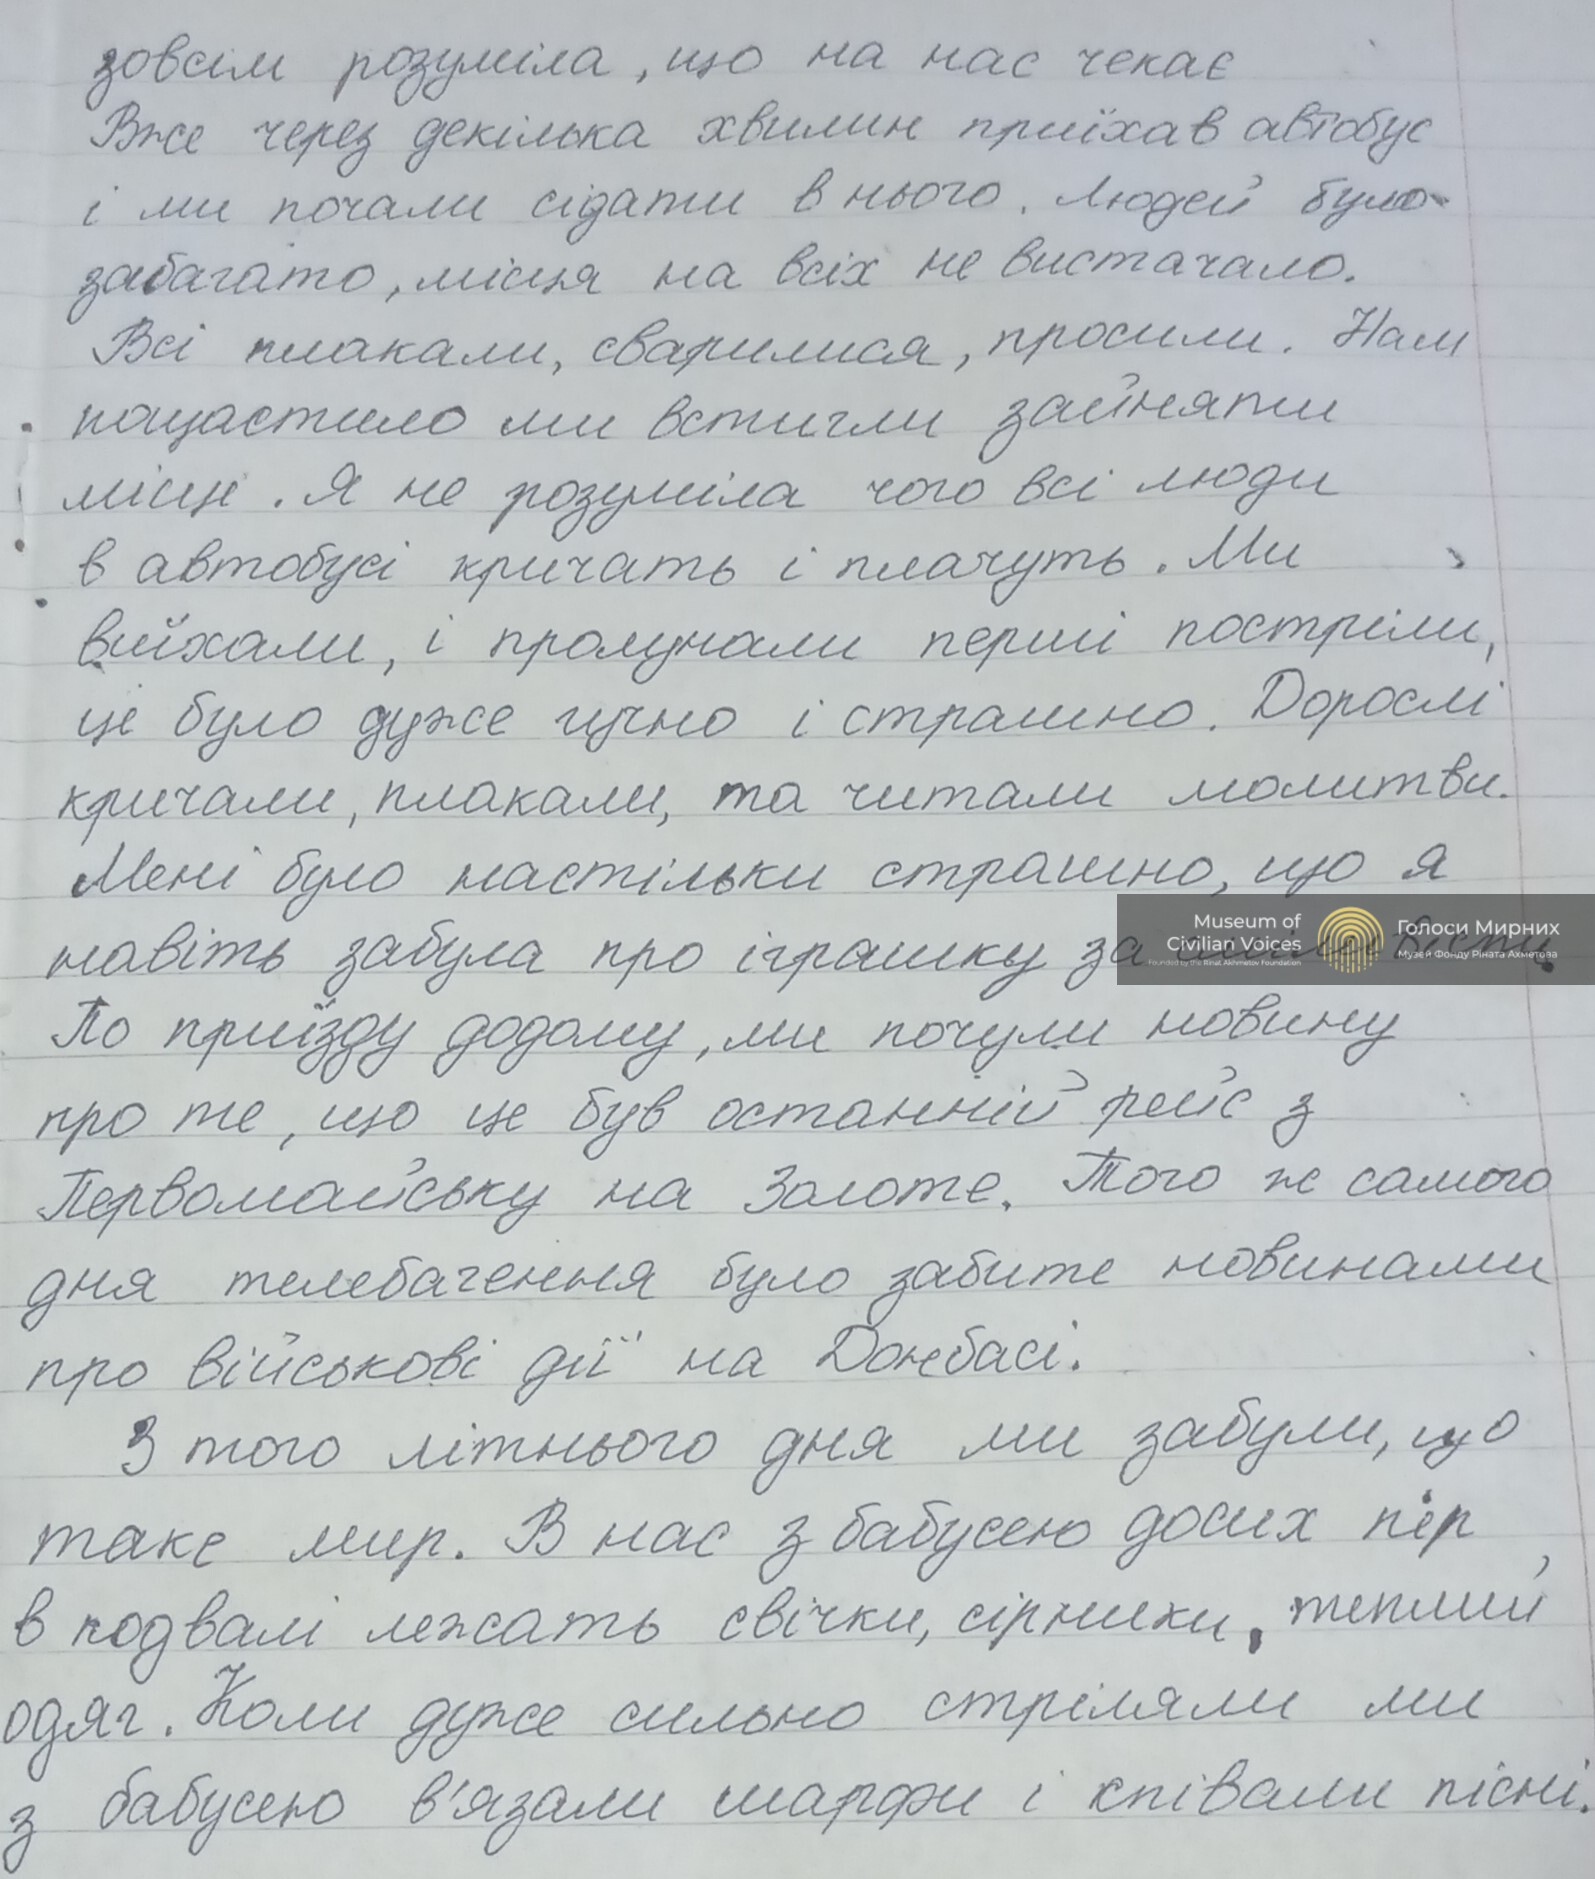 зовсім розуміла, що на нас чекає
Вже через декілька хвилин приїхав автобус
і ми почали сідати в нього. Людей було
забагато, місця на всіх не вистачало.
Всі плакали, сварилися, просили. Нам
пощастило ми встигли зайняти
місце. Я не розуміла чого всі люди
в автобусі кричать і плачуть. Ми
виїхали, і пролунали перші постріли,
це було дуже гучно і страшно. Дорослі
кричали, плакали, та читали молитви.
Мені було настільки страшно, що я
навіть забула про іграшку за
Museum of
Civilian Voices
Founded by the Rinat Akhmetov Foundation
Голоси Мирних
Музей Фонду Ріната Ахметова
По приїзду додому, ми почули новину
про те, що це був останній рейс з
Первомайську на Золоте. Того ж самого
дня телебачення було забите новинами
про військові дії на Донбасі.
З того літнього дня ми забули, що
таке мир. В нас з бабусею досих пір
в подвалі лежать свічки, сірники, теплий
одяг. Коли дуже сильно стріляли ми
з бабусею в'язали шарфи і співали пісні.